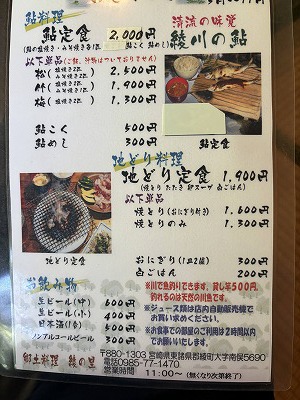 鮎料理
鮎定食 2,000円
清流の味覚
綾川の鮎
以下単品
松 2,500円
竹 1,900円
梅 1,300円
鮎こく 500円
鮎めし 300円
鮎定食
地どり料理
地どり定食 1,900円
(焼とり たたき 卵スープ 白ごはん)
以下単品
焼とり(おにぎり付き) 1,600円
焼とりのみ 1,300円
地どり定食
おにぎり(1皿2個) 300円
白ごはん 200円
お飲み物
生ビール(中) 600円
生ビール(小) 400円
日本酒 500円
ノンアルコールビール 300円
※川で魚釣りできます、貸し竿500円、
釣れるのは天然の川魚です。
※ジュース類は店内自動販売機で
お買い求めください。
※お食事での部屋のご利用は2時間以内
でお願いします。
郷土料理 綾の里
〒880-1303 宮崎県東諸県郡綾町大字南俣5690
電話0985-77-1470
営業時間 11:00~(無くなり次第終了)